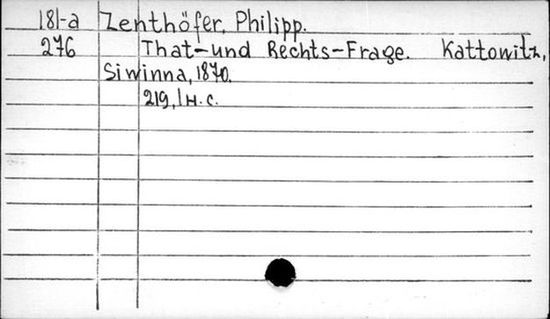 181-a Zenthöfer, Philipp.
276 That-und Rechts-Frage. Kattowitz,
Siwinna, 1870.
219, 1 н.с.